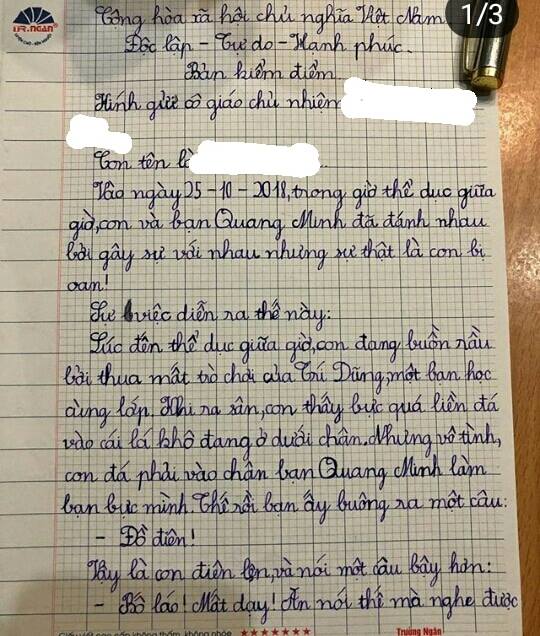 TR.NGÂN
1/3
Cộng hòa xã hội chủ nghĩa Việt Nam
Độc lập - Tự do - Hạnh phúc.
Bản kiểm điểm
Kính gửi cô giáo chủ nhiệm
Con tên là
Vào ngày 25-10-2018, trong giờ thể dục giữa
giờ, con và bạn Quang Minh đã đánh nhau
bởi gây sự với nhau nhưng sự thật là con bị
oan!
Sự việc diễn ra thế này:
Lúc đến thể dục giữa giờ, con đang buồn rầu
bởi thua mất trò chơi của Trí Dũng, một bạn học
cùng lớp. Khi ra sân, con thấy bực quá liền đá
vào cái lá khô đang ở dưới chân. Nhưng vô tình,
con đá phải vào chân bạn Quang Minh làm
bạn bực mình. Thế rồi bạn ấy buông ra một câu:
- Đồ điên!
Vậy là con điên lên, và nói một câu bậy hơn:
- Bố láo! Mất dạy! Ăn nói thế mà nghe được
★★★★★★★ Trường Ngân